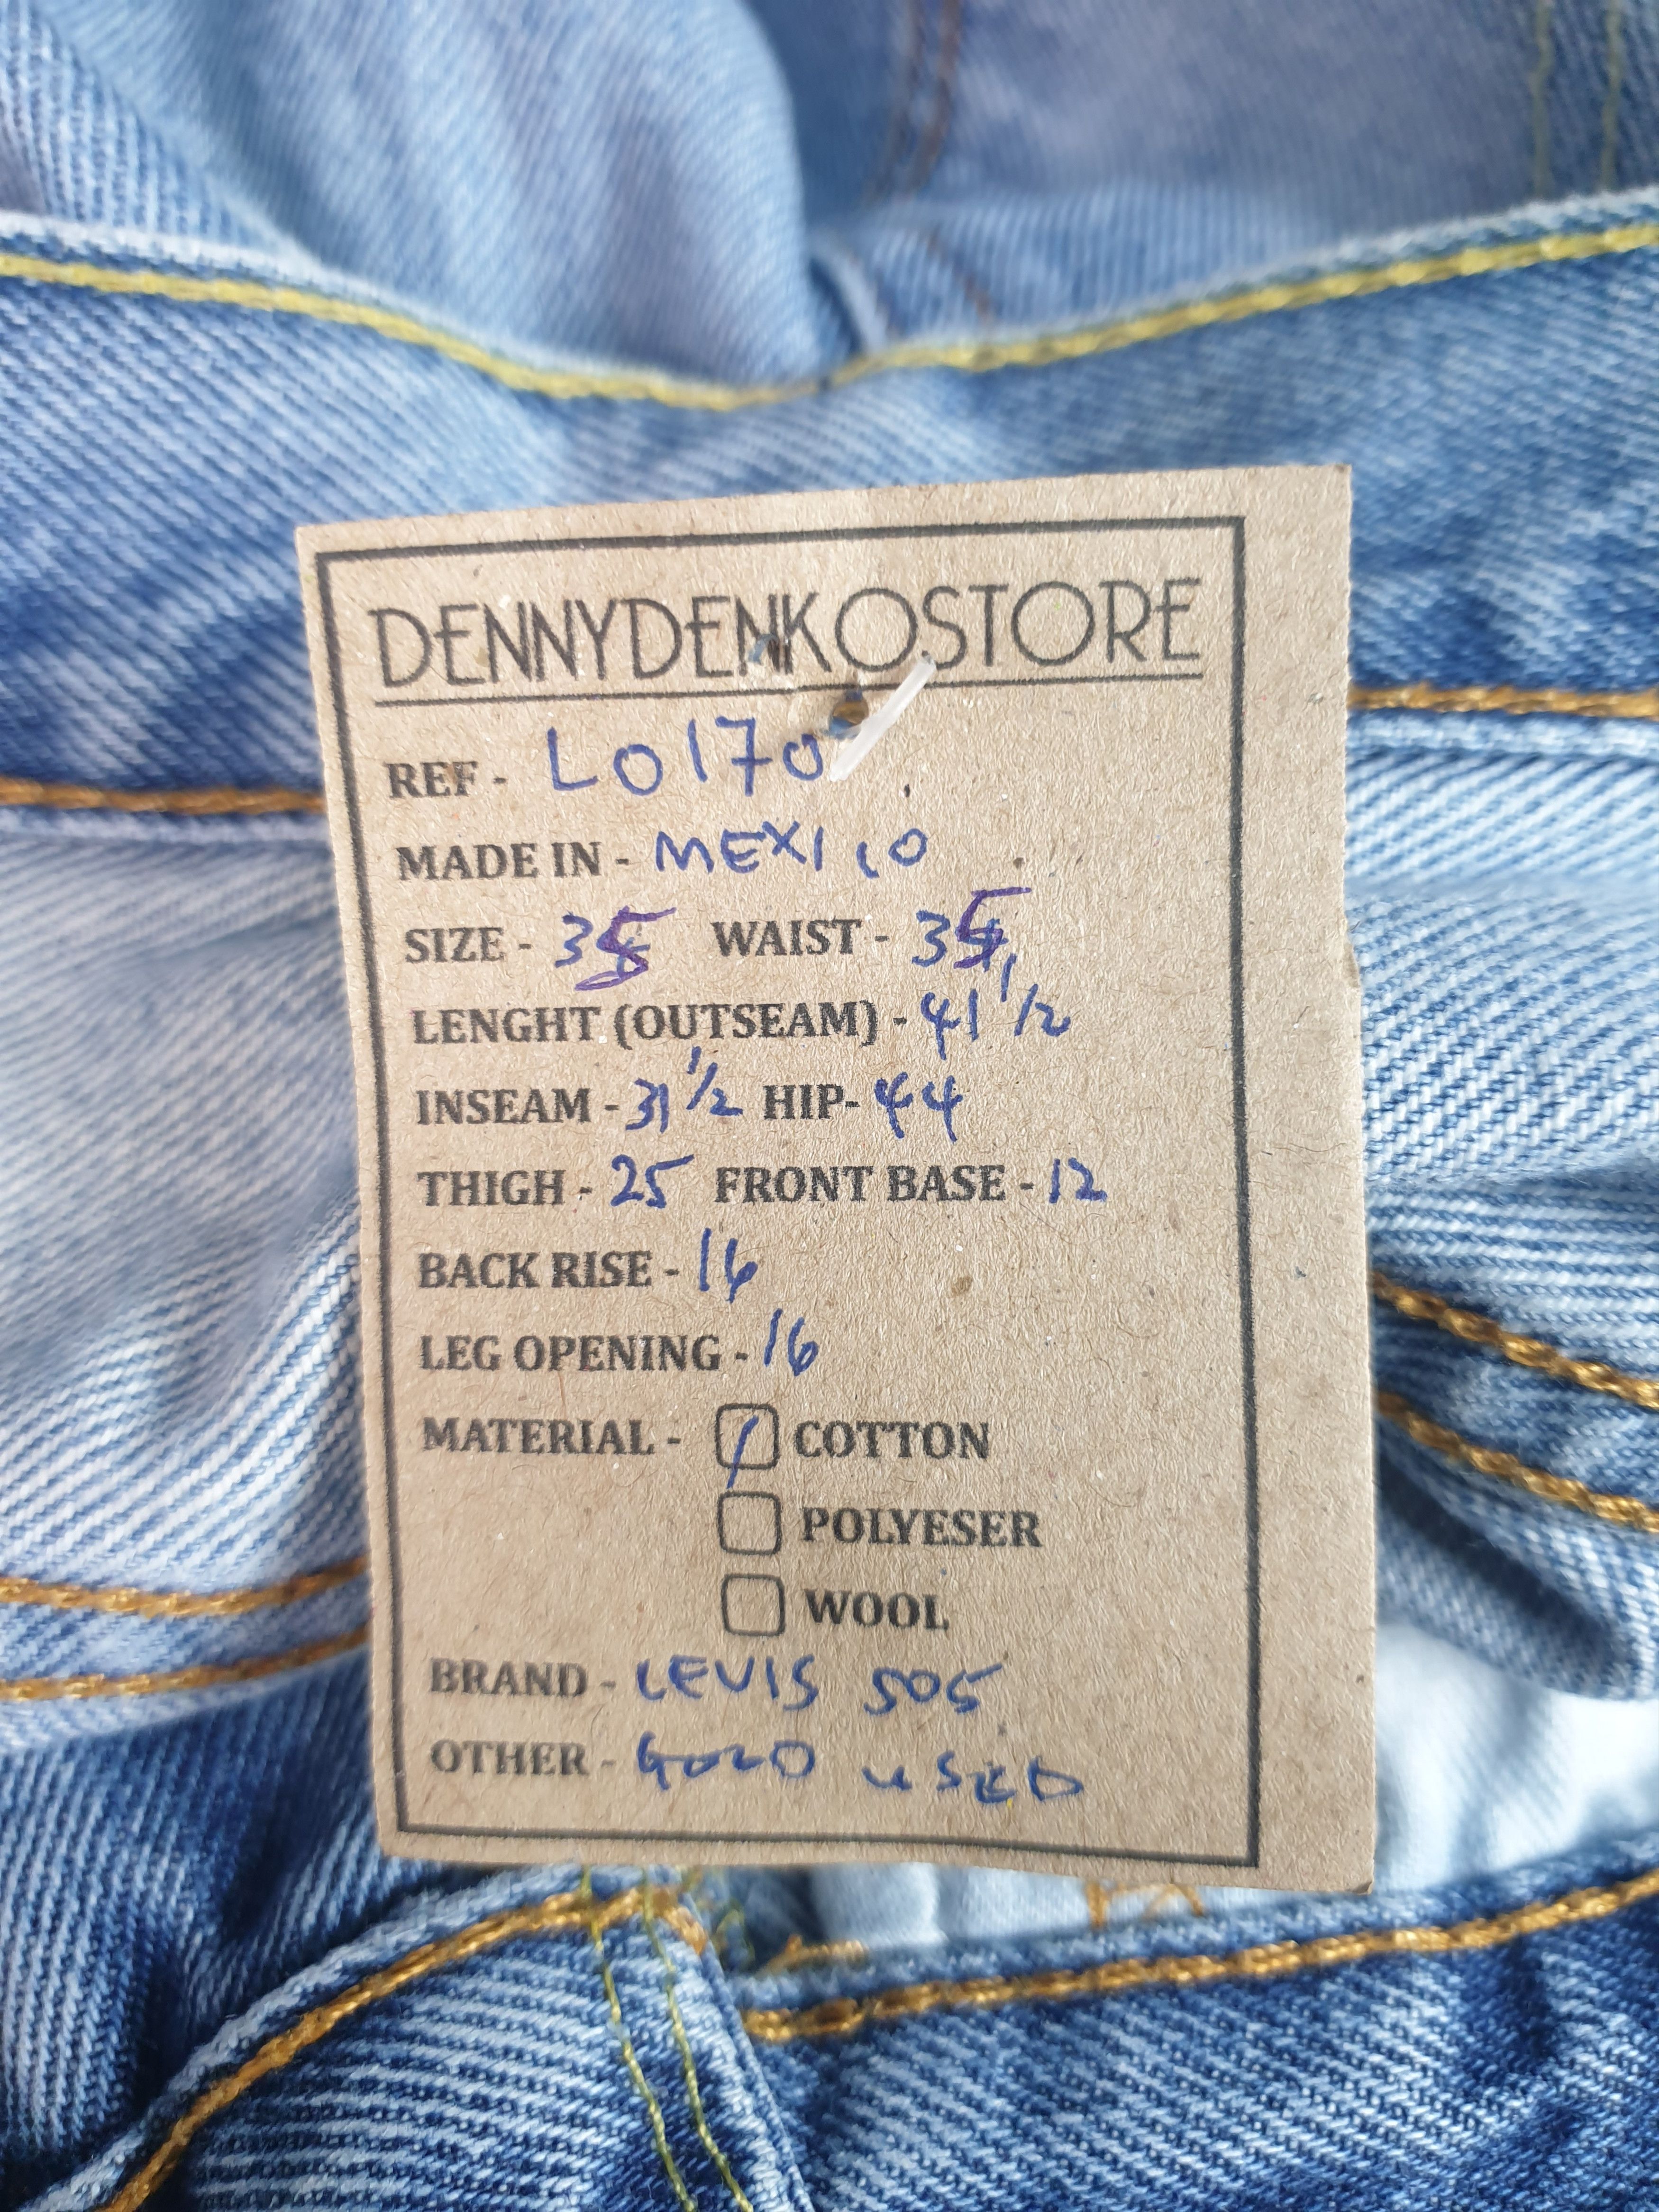 DENNYDENKOSTORE
REF - LO170
MADE IN - MEXICO
SIZE - 35 WAIST - 35
LENGHT (OUTSEAM) - 41 1/2
INSEAM - 31 1/2 HIP- 44
THIGH - 25 FRONT BASE - 12
BACK RISE - 16
LEG OPENING - 16
MATERIAL - COTTON
POLYESER
WOOL
BRAND - LEVIS 505
OTHER - GOLD USED